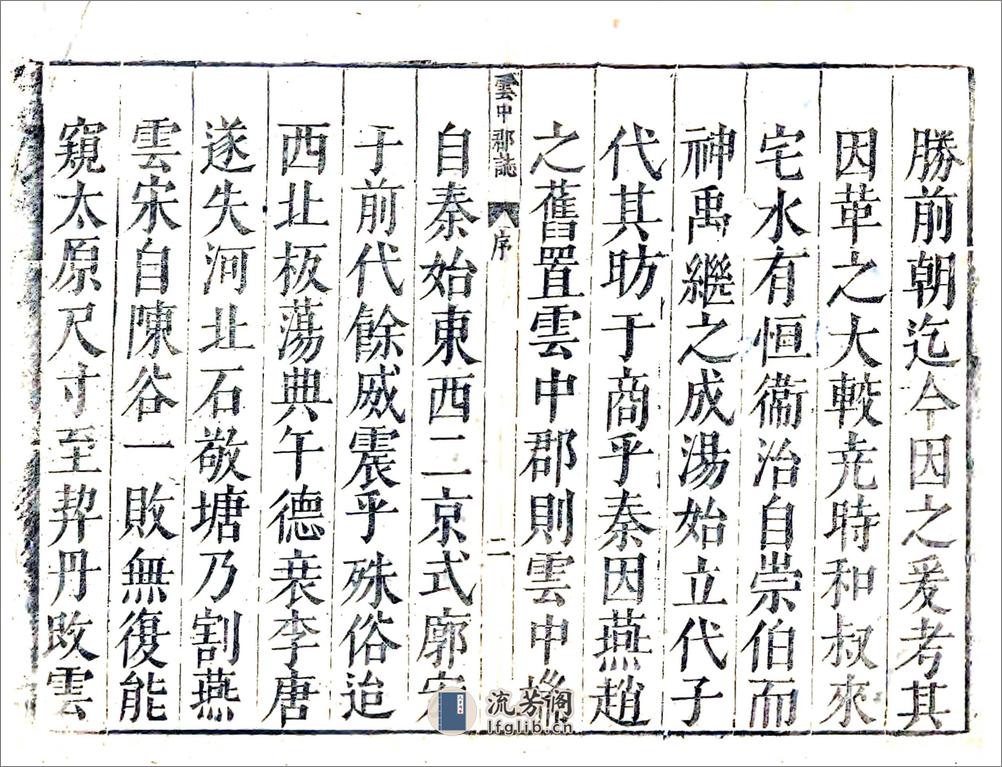 勝前朝迄今因之爰考其
因革之大較尭時和叔來
宅水有恒衞治自崇伯而
神禹繼之成湯始立代子
代其昉于商乎秦因燕趙
之舊置雲中郡則雲中
雲中郡誌
序
二
自秦始東西二京式廓
于前代餘威震乎殊俗迨
西北板蕩典午德衰李唐
遂失河北石敬塘乃割燕
雲宋自陳谷一敗無復能
窺太原尺寸至契丹改雲
流芳阁
lfglib.cn